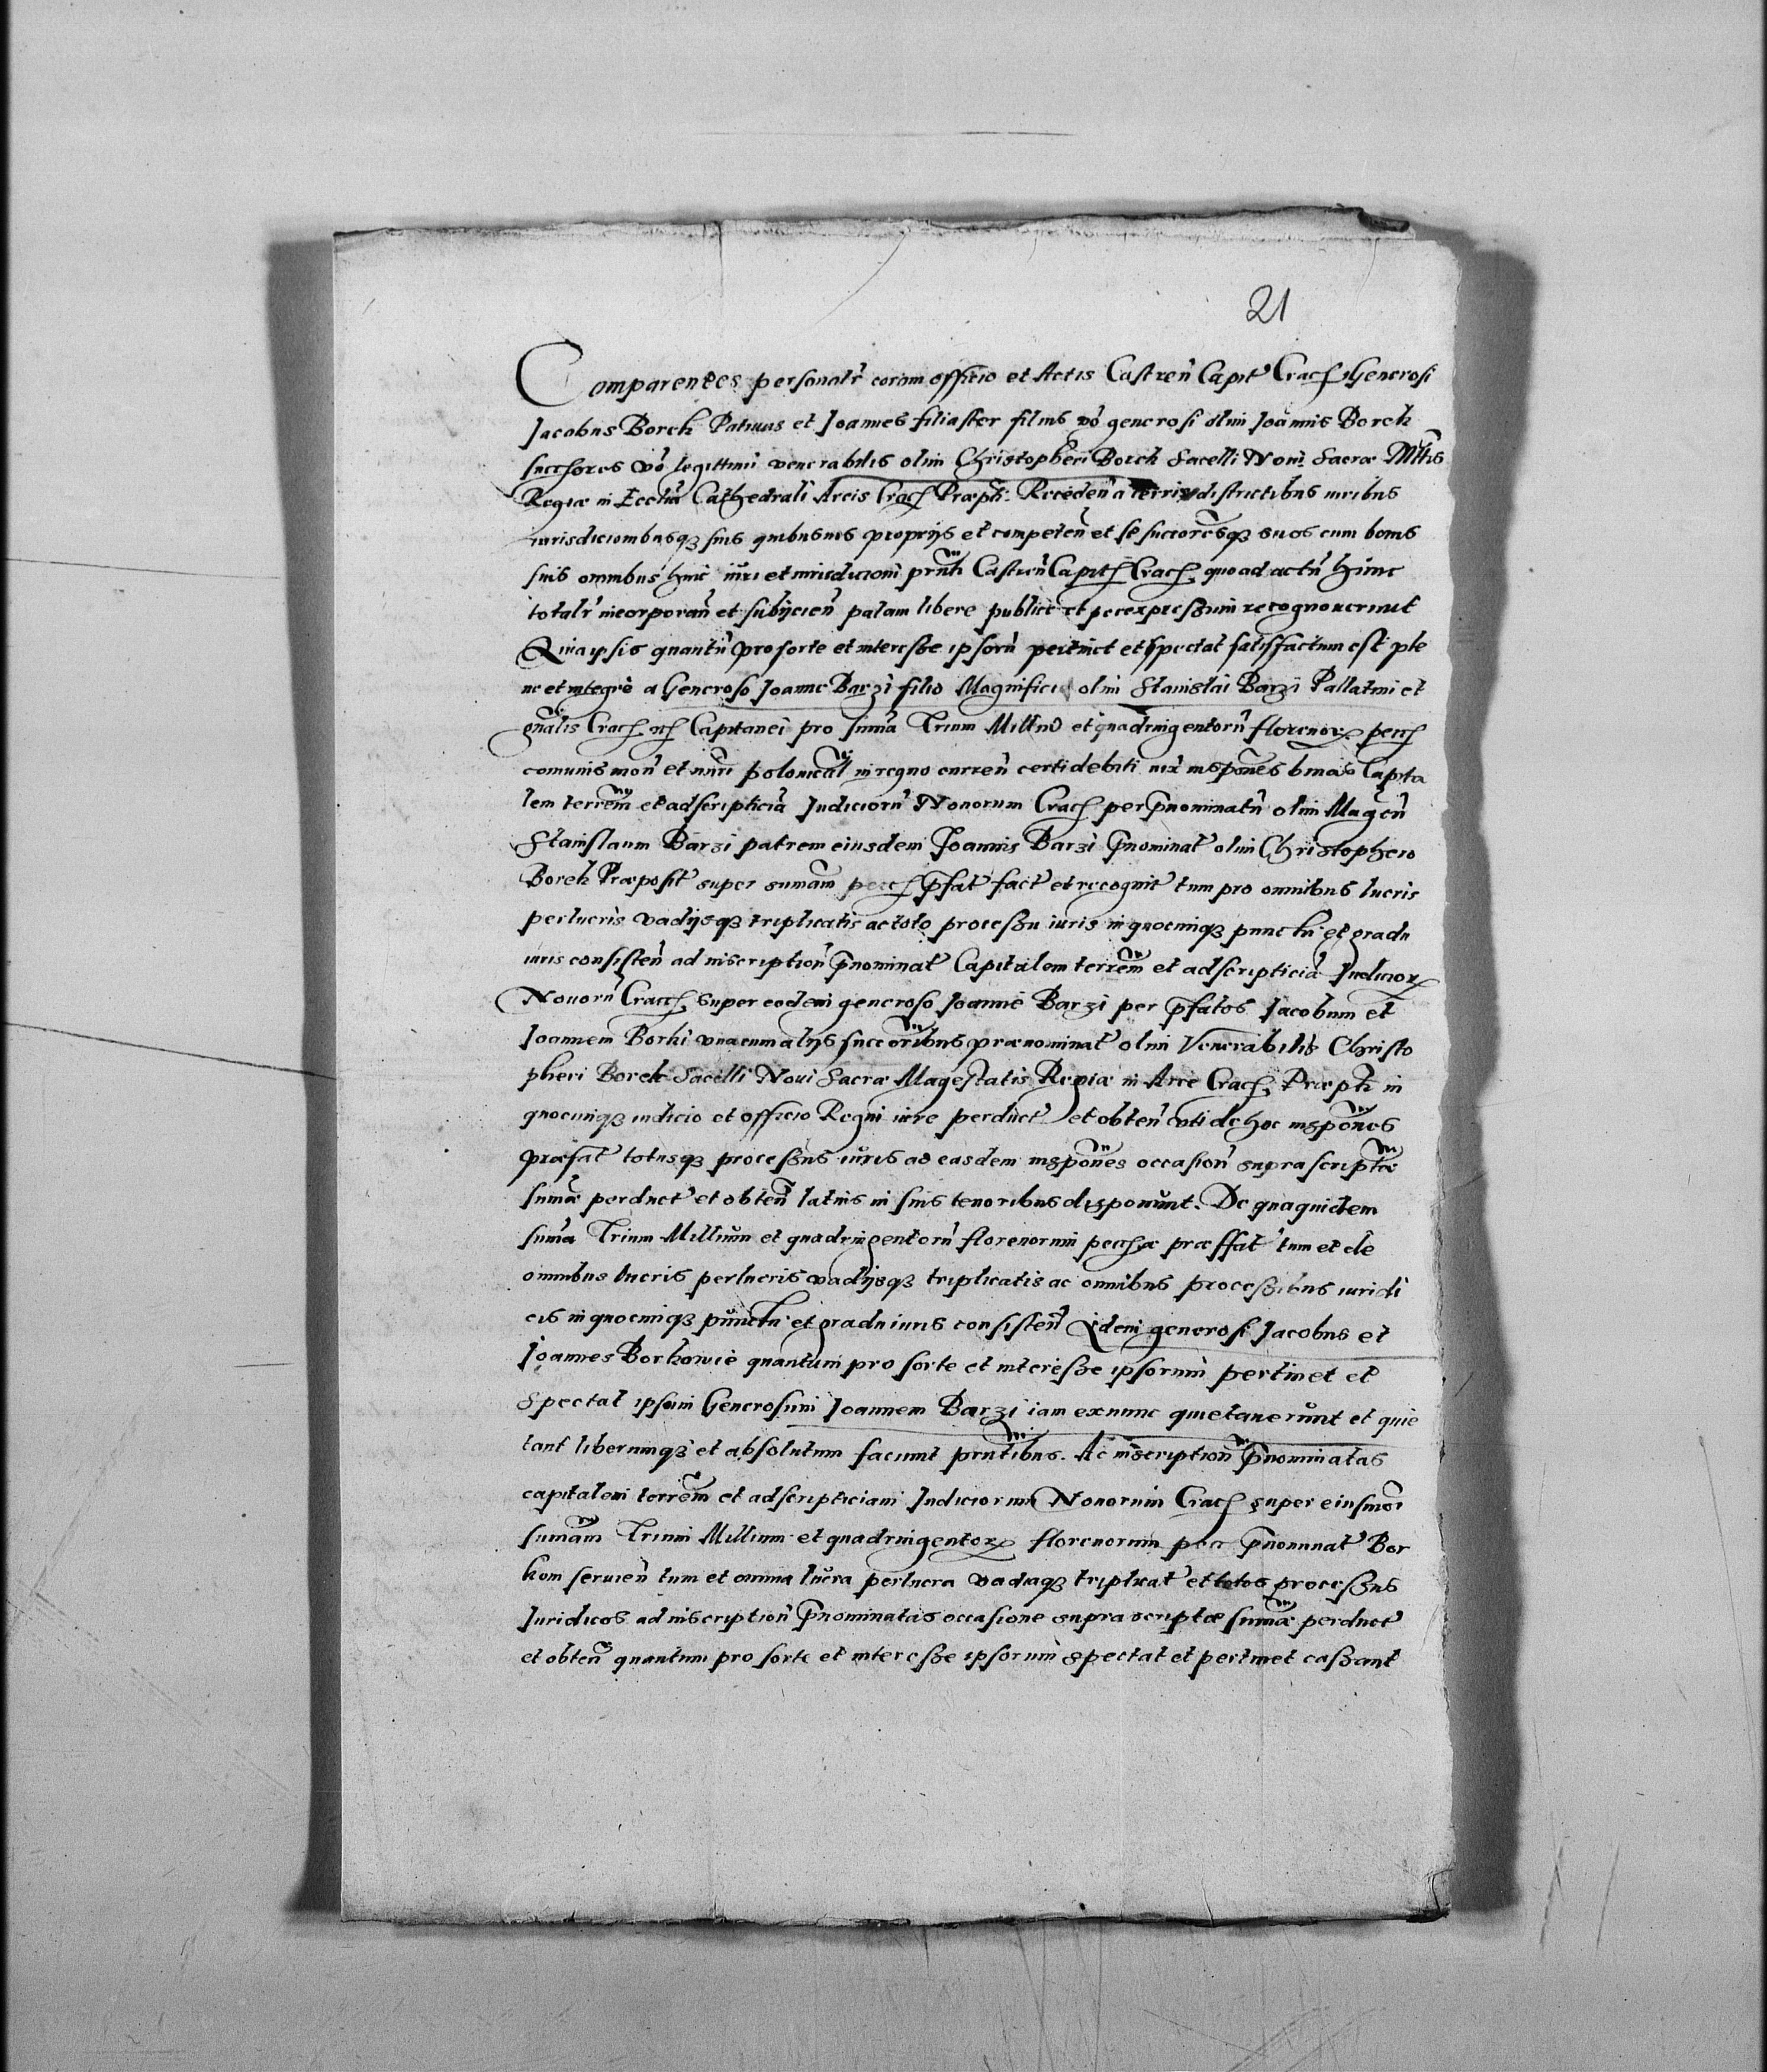 21
Comparentes personalr̃ coram officio et Actis Castreñ Capit Crac̃ Generosi
Jacobus Borek Patruus et Joannes filiaster filius ṽo generosi olim Joannis Borek
succ̃sores ṽo legittimi venerabilis olim Christopheri Borek Sacelli Noui Sacræ Mt̃is
Regiæ in Ecclia Cathedrali Arcis Crac̃ Præpti. Recedeñ a terris districtibus iuribus
iurisdicionibusq̃ suis quibusuis proprijs et competeñ et se succoresq̃ suos cum bonis
suis omnibus huic iuri et iurisdicioni pr̃nti Castreñ Capitc̃ Crac̃ quo ad actũ hunc
totalr̃ incorporañ et subijcieñ palam libere publice et per expressum recognouerunt
Quia ipsis quantũ pro sorte et interesse ipsorũ pertinet et spectat satisfactum est ple
ne et integre a Generoso Joanne Barzi filio Magnifici olim Stanislai Barzi Pallatini et
gñalis Crac̃ Capitanei pro sum̃a Trium Milliũ et quadringentorũ florenor̃ pecc̃
comunis moñ et nũri polonical̃ in regno curreñ certi debiti iux̃ inspões binas Capita
lem terrem̃ et adscripticiã Judiciorũ Nouorum Crac̃ per p̃nominatũ olim Mag̃cũ
Stanislaum Barzi patrem eiusdem Joannis Barzi p̃nominat olim Christophero
Borek Præposit super sumam̃ pecc̃ p̃fat fact et recognit tum pro omnibus lucris
perlucris vadijsq̃ triplicatis ac toto processu iuris in quocunq̃ punctu et gradu
iuris consisteñ ad inscriptioñ p̃nominat Capitalem terrem̃ et adscripticiã Judicior̃
Nouorũ Cracc̃ super eodem generoso Joanne Barzi per p̃fatos Jacobum et
Joannem Borki vna cum alijs succoribus prænominat olim Venerabilis Christo
pheri Borek Sacelli Noui Sacræ Magestatis Regiæ in Arce Crac̃ Præpti in
quocunq̃ iudicio et officio Regni iure perduct et obteñ vti de hoc inspões
præfat totusq̃ processus iuris ad easdem inspões occasioñ supra scriptæ
sum̃æ perduct et obteñ latius in suis tenoribus disponunt. De qua quidem
sum̃a Trium Millium et quadringentorũ florenorum pecc̃æ præffat tum et de
omnibus lucris perlucris vadijsq̃ triplicatis ac omnibus processibus iuridi
cis in quocunq̃ punctu et gradu iuris consisteñ Idem generosi Jacobus et
Joannes Borkowie quantum pro sorte et interesse ipsorum pertinet et
spectat ipsum Generosum Joannem Barzi iam ex nunc quietauerunt et quie
tant liberumq̃ et absolutum faciunt pr̃ntibus. Ac inscriptioñ p̃nominatas
capitalem terrem̃ et adscripticiam Judiciorum Nouorum Crac̃ super eiusmoi
sumam̃ Trium Millium et quadringentor̃ florenorum per p̃nominat Bor
kom seruieñ tum et omnia lucra perlucra vadiaq̃ triplicat et totos processus
Juridicos ad inscriptioñ p̃nominatas occasione supra scriptæ sum̃æ perduct
et obteñ quantum pro sorte et interesse ipsorum spectat et pertinet cassant